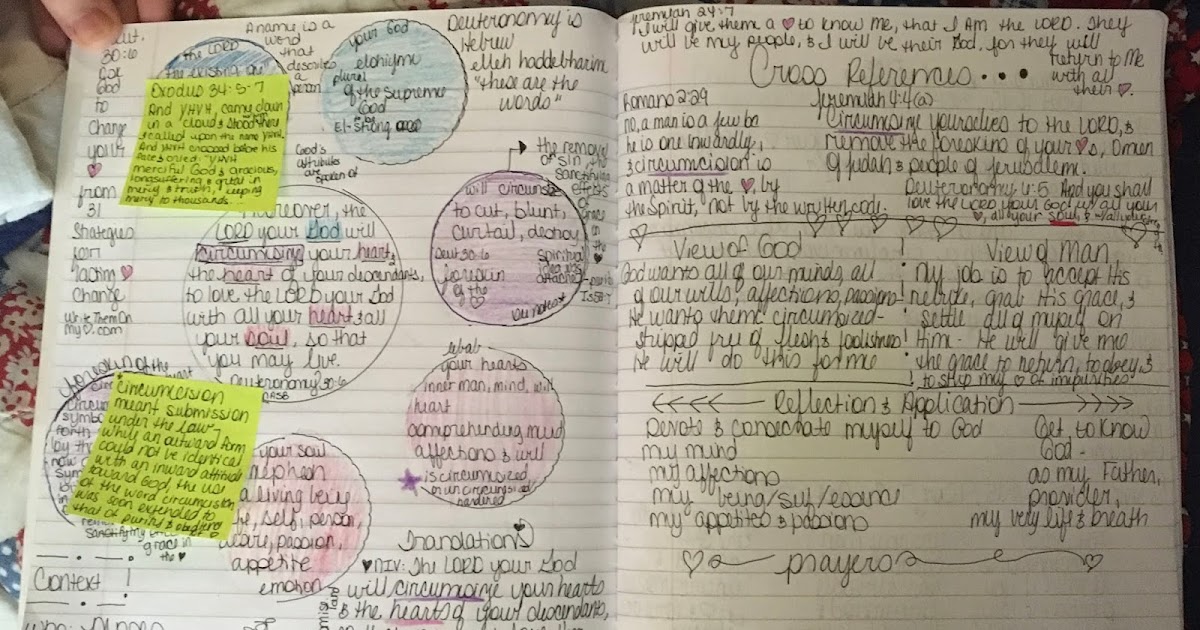 Deut.
30:6
God
to
Change
your
♥
from
31
Strategies
for
lasting ♥
Change
Write Them On
My ♡.com
A name is a
word
that
describes
a
person
the LORD
"the existing one"
Exodus 34:5-7
And YHVH, came down
in a clouds & stood there
& called upon the name YHVH.
And YHVH crossed before his
face & cried: "YHVH
merciful God & gracious,
longsuffering & great in
mercy & truth, keeping
mercy to thousands...
your God
elohiym
plural
of the supreme
God
El-strong
God's
attributes
are spoken of
Deuteronomy is
Hebrew
elleh haddebharim
"these are the
words"
Moreover, the
LORD your God will
circumcise your heart &
the heart of your descendants,
to love the LORD your God
with all your heart & all
your soul, so that
you may live.
Deuteronomy 30:6
NASB
the removal
of sin, the
sanctifying
effects
of
grace
in
the
♥
will circumcise
to cut, blunt,
curtail, destroy
Deut 30:6
foreskin
of the
♡
Spiritual
ideas
attached
foreskin of the heart
circumcision
meant submission
under the law
while an outward form
could not be identical
with an inward attitude
toward God, the use
of the word circumcision
was soon extended to
that of purity & obedience
grace in
the ♥
lebab
your hearts
inner man, mind, will
heart
comprehending mind
affections & will
is circumsized
or uncircumsized
hardened
your soul
nephesh
a living being
life, self, person,
desire, passion,
appetite
emotion
Context
Translations
♥NIV: The LORD your God
will circumcise your hearts
& the hearts of your descendants,
Jeremiah 24:7
I will give them a ♥ to know Me, that I AM the LORD. They
will be my people, & I will be their God, for they will
return to Me
with all
their ♥.
Cross References...
Romans 2:29
no, a man is a Jew bc
he is one inwardly,
& circumcision is
a matter of the ♥, by
the Spirit, not by the written code.
Jeremiah 4:4(a)
Circumsize yourselves to the LORD, &
remove the foreskins of your ♥s, O men
of Judah & people of Jerusalem.
Deuteronomy 4:5 And you shall
love the LORD your God w/ all your
♥, all your soul, & w/ all your
View of God
God wants all of our minds, all
of our wills, affections, passions!
He wants them circumcized-
stripped free of flesh & foolishness!
He will do this for me
View of Man
My job is to accept His
rebuke, grab His grace, &
settle all of myself on
Him. He will give me
the grace to return, to obey, &
to strip my ♡ of impurities
Reflection & Application
Devote & consecrate myself to God
my mind
my affections
my being/self/essence
my appetites & passions
Get to know
God-
as my Father,
provider,
my very life & breath
prayers